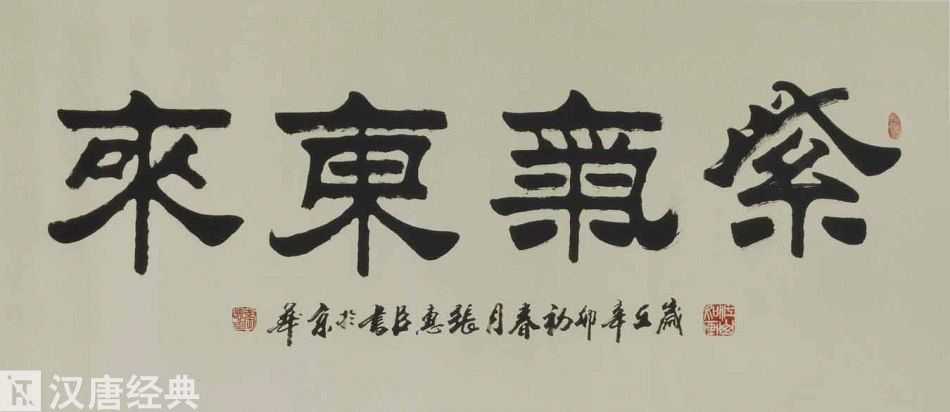 紫氣東來
歲在辛卯初春月張惠臣書於京華
汉唐经典